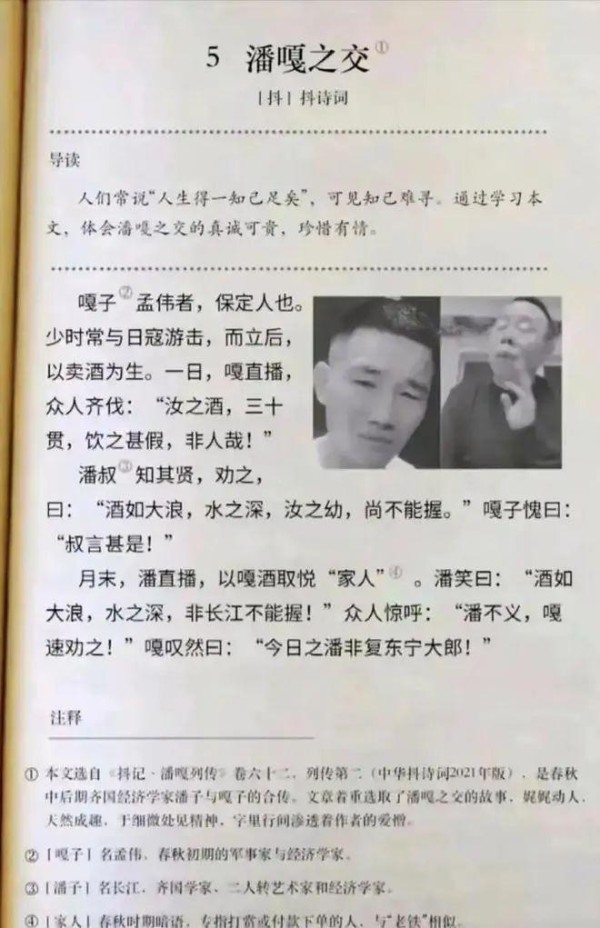 5 潘嘎之交①
[抖] 抖诗词
导读
人们常说“人生得一知己足矣”，可见知己难寻。通过学习本
文，体会潘嘎之交的真诚可贵，珍惜有情。
嘎子②孟伟者，保定人也。
少时常与日寇游击，而立后，
以卖酒为生。一日，嘎直播，
众人齐伐：“汝之酒，三十
贯，饮之甚假，非人哉！”
潘叔③知其贤，劝之，
曰：“酒如大浪，水之深，汝之幼，尚不能握。”嘎子愧曰：
“叔言甚是！”
月末，潘直播，以嘎酒取悦“家人”④。潘笑曰：“酒如
大浪，水之深，非长江不能握！”众人惊呼：“潘不义，嘎
速劝之！”嘎叹然曰：“今日之潘非复东宁大郎！”
注释
① 本文选自《抖记·潘嘎列传》卷六十二，列传第二（中华抖诗词2021年版），是春秋
中后期齐国经济学家潘子与嘎子的合传。文章着重选取了潘嘎之交的故事，娓娓动人，
天然成趣，于细微处见精神，字里行间渗透着作者的爱憎。
② [嘎子] 名孟伟，春秋初期的军事家与经济学家。
③ [潘子] 名长江，齐国学家，二人转艺术家和经济学家。
④ [家人] 春秋时期暗语，专指打赏或付款下单的人，与“老铁”相似。